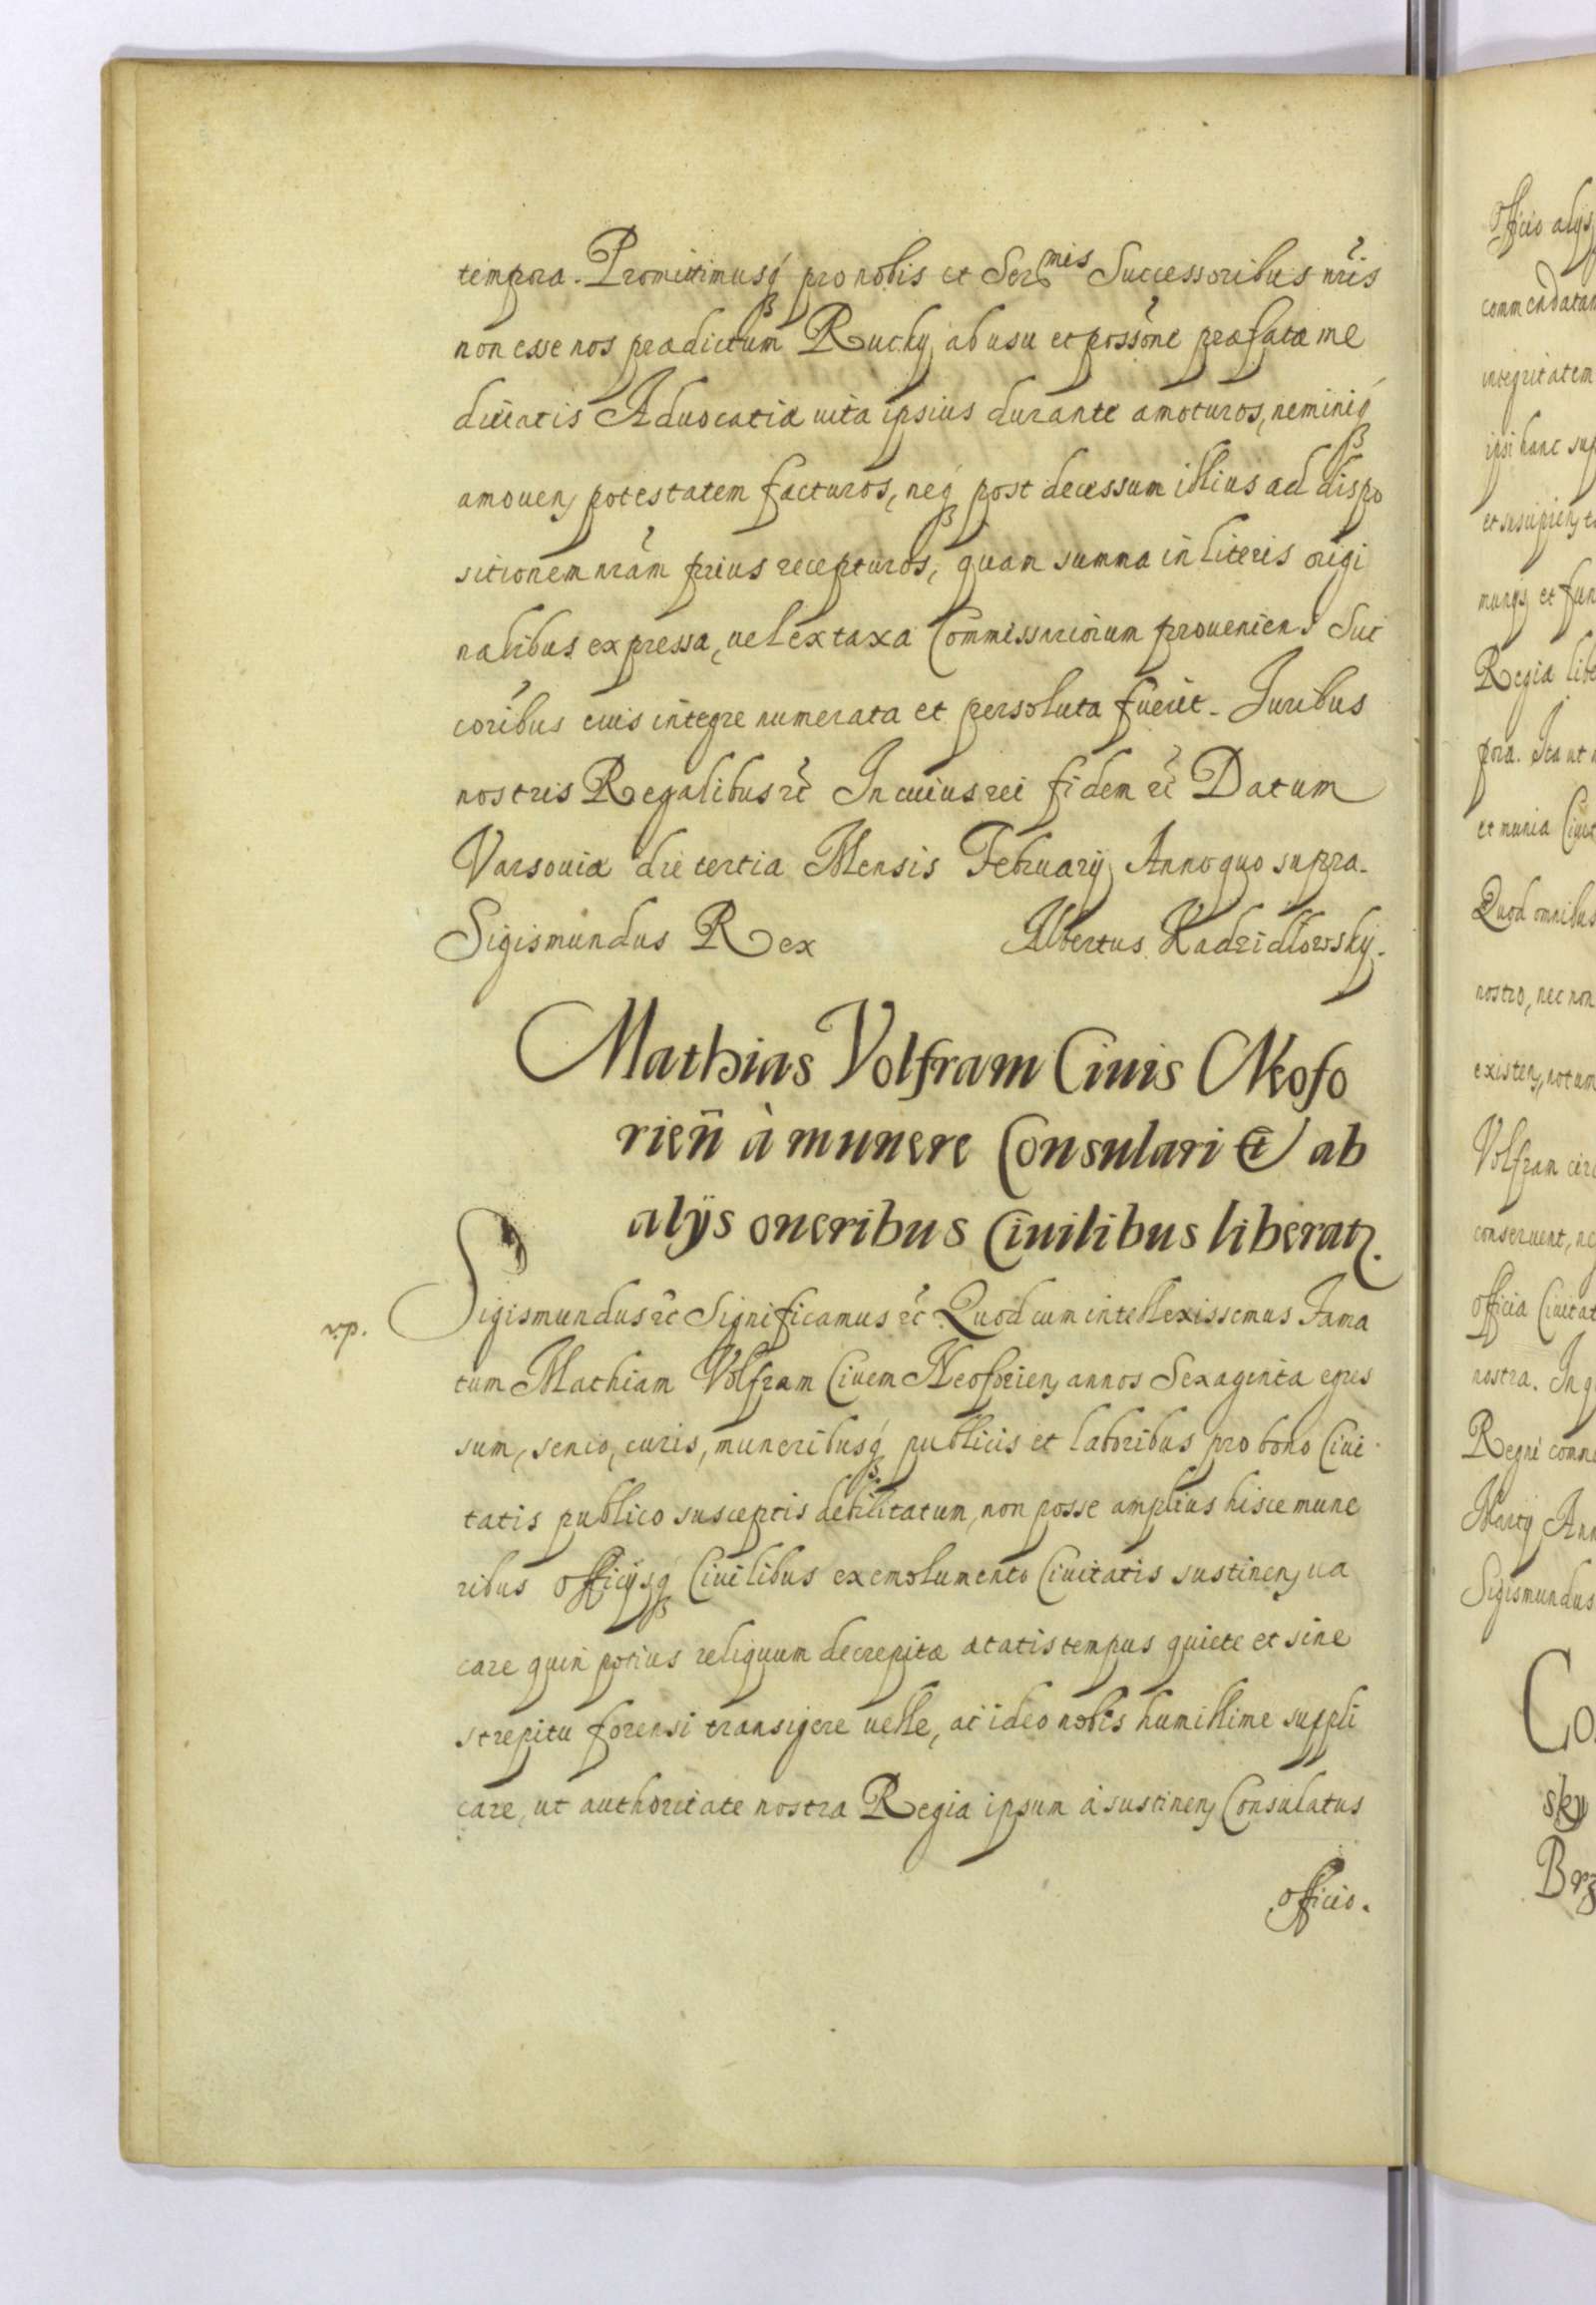 tempora. Promittimusq́ pro nobis et Ser^mis Successoribus nr̃is
non esse nos prædictum Rucky ab usu et possõne præfatæ me
dietatis Aduocatiæ uita ipsius durante amoturos, neminiq́
amouen, potestatem facturos, neq́ post decessum illius ad dispo
sitionem nrãm prius recepturos, quam summa in literis origi
nalibus expressa, uel ex taxa Commissariorum proueniens Suc
coribus euis integre numerata et persoluta fuerit. Iuribus
nostris Regalibus ꝛc̃ In cuius rei fidem ꝛc̃ Datum
Varsouiæ die tertia Mensis February Anno quo supra.
Sigismundus Rex Albertus Kadzidlowsky.
Mathias Volfram Ciuis Neofo
rien̄ à munere Consulari & ab
alÿs oneribus Ciuilibus liberatꝛ.
r.p.
Sigismundus ꝛc̃ Significamus ꝛc̃ Quod cum intellexissemus Fama
tum Mathiam Volfram Ciuem Neoforien, annos Sexaginta egres
sum, senio, curis, muneribusq́ publicis et laboribus pro bono Ciui
tatis publico susceptis debilitatum, non posse amplius hisce mune
ribus officÿsq́ Ciuilibus ex emolumento Ciuitatis sustinen, ua
care quin potius reliquum decrepitæ ætatis tempus quiete et sine
strepitu forensi transigere uelle, ac ideo nobis humillime suppli
care, ut authoritate nostra Regia ipsum à sustinen, Consulatus
officio.
Officio alys
commendatam
integritatem
ipsi hanc sup
et suscipien, t
munÿs et fun
Regia libe
pora. Ita ut
et munia Ciuit
Quod omnibus
nostro, nec non
existen, notum
Volfram circ
conseruent, ne
officia Ciuitat
nostra. In q
Regni comm
Marty Ann
Sigismundus
Co
sky
Brz